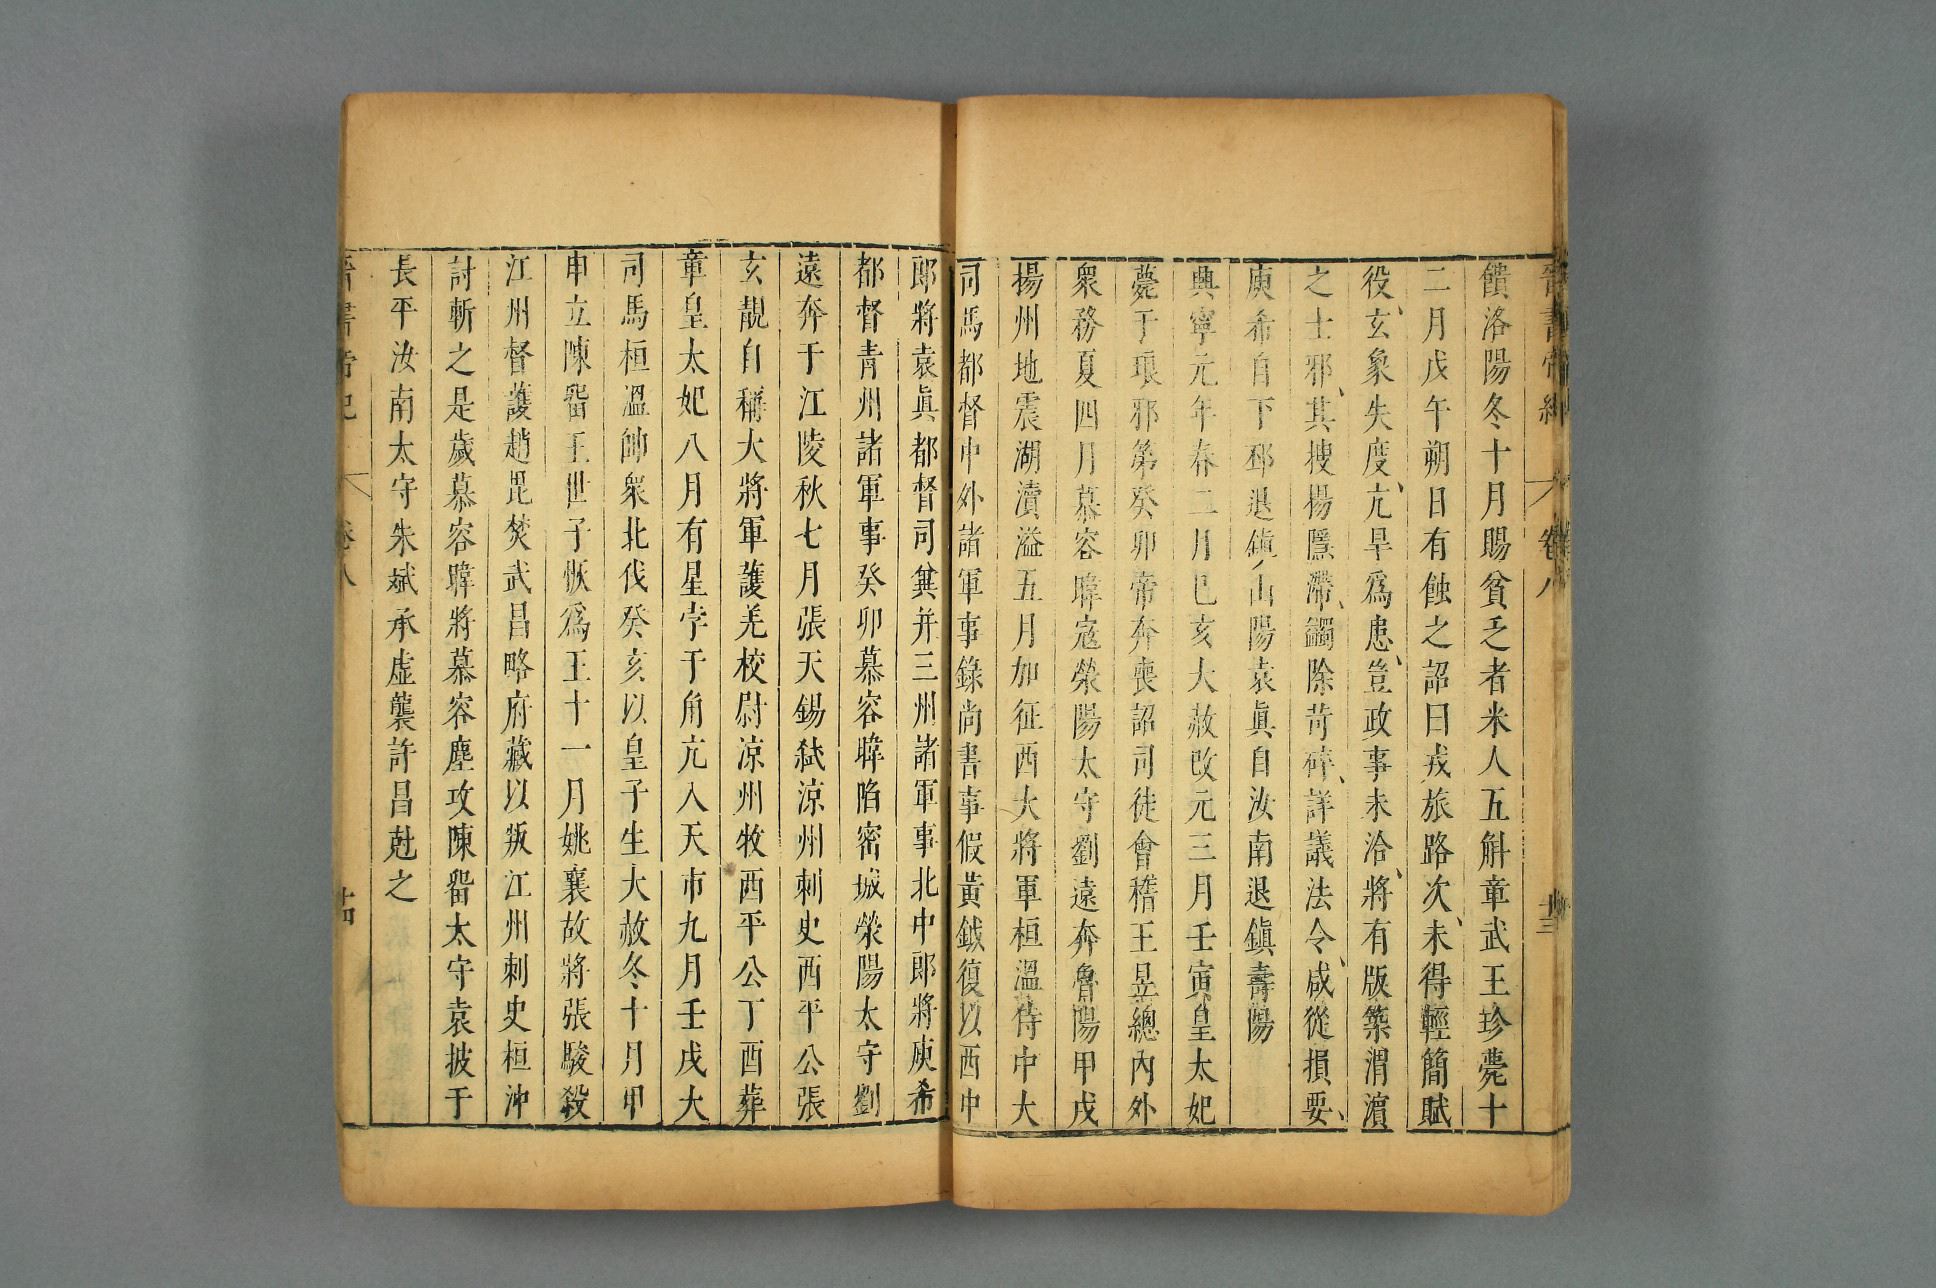 晉書帝紀 卷八 十三
饋洛陽冬十月賜貧乏者米人五斛章武王珍薨十
二月戊午朔日有蝕之詔曰戎旅路次、未得輕簡賦
役、玄象失度、亢旱爲患、豈政事未洽、將有版築渭濵
之士邪、其搜揚隱滯、蠲除苛碎、詳議法令、咸從損要、
庾希自下邳退鎮山陽袁眞自汝南退鎭壽陽
興寧元年春二月己亥大赦改元三月壬寅皇太妃
薨于琅邪第癸卯帝奔喪詔司徒會稽王昱總內外
衆務夏四月慕容暐寇滎陽太守劉遠奔魯陽甲戌
揚州地震湖瀆溢五月加征西大將軍桓溫侍中大
司馬都督中外諸軍事錄尚書事假黃鉞復以西中
郎將袁眞都督司兾并三州諸軍事北中郎將庾希
都督青州諸軍事癸卯慕容暐陷密城滎陽太守劉
遠奔于江陵秋七月張天錫弑涼州刺史西平公張
玄靚自稱大將軍護羌校尉涼州牧西平公丁酉葬
章皇太妃八月有星孛于角亢入天市九月壬戌大
司馬桓溫帥衆北伐癸亥以皇子生大赦冬十月甲
申立陳畱王世子恢爲王十一月姚襄故將張駿殺
江州督護趙毘焚武昌略府藏以叛江州刺史桓沖
討斬之是歲慕容暐將慕容塵攻陳畱太守袁披于
長平汝南太守朱斌承虛襲許昌尅之
晉書帝紀 卷八 十四